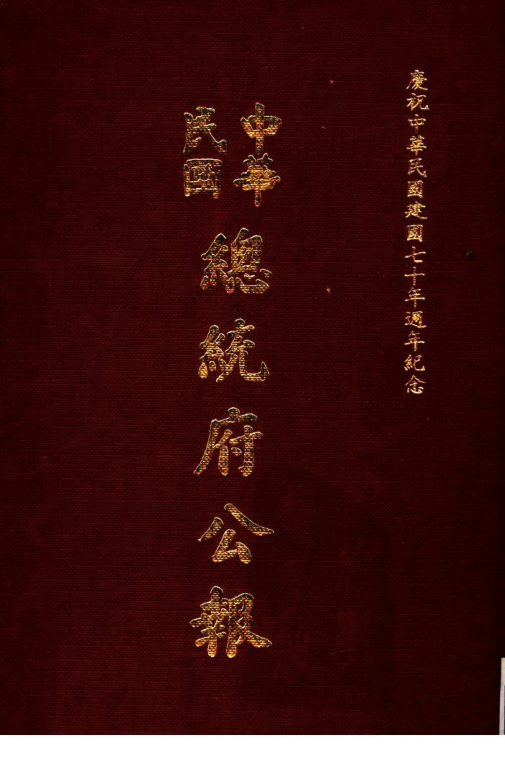 慶祝中華民國建國七十年週年紀念
中華
民國
總統府公報